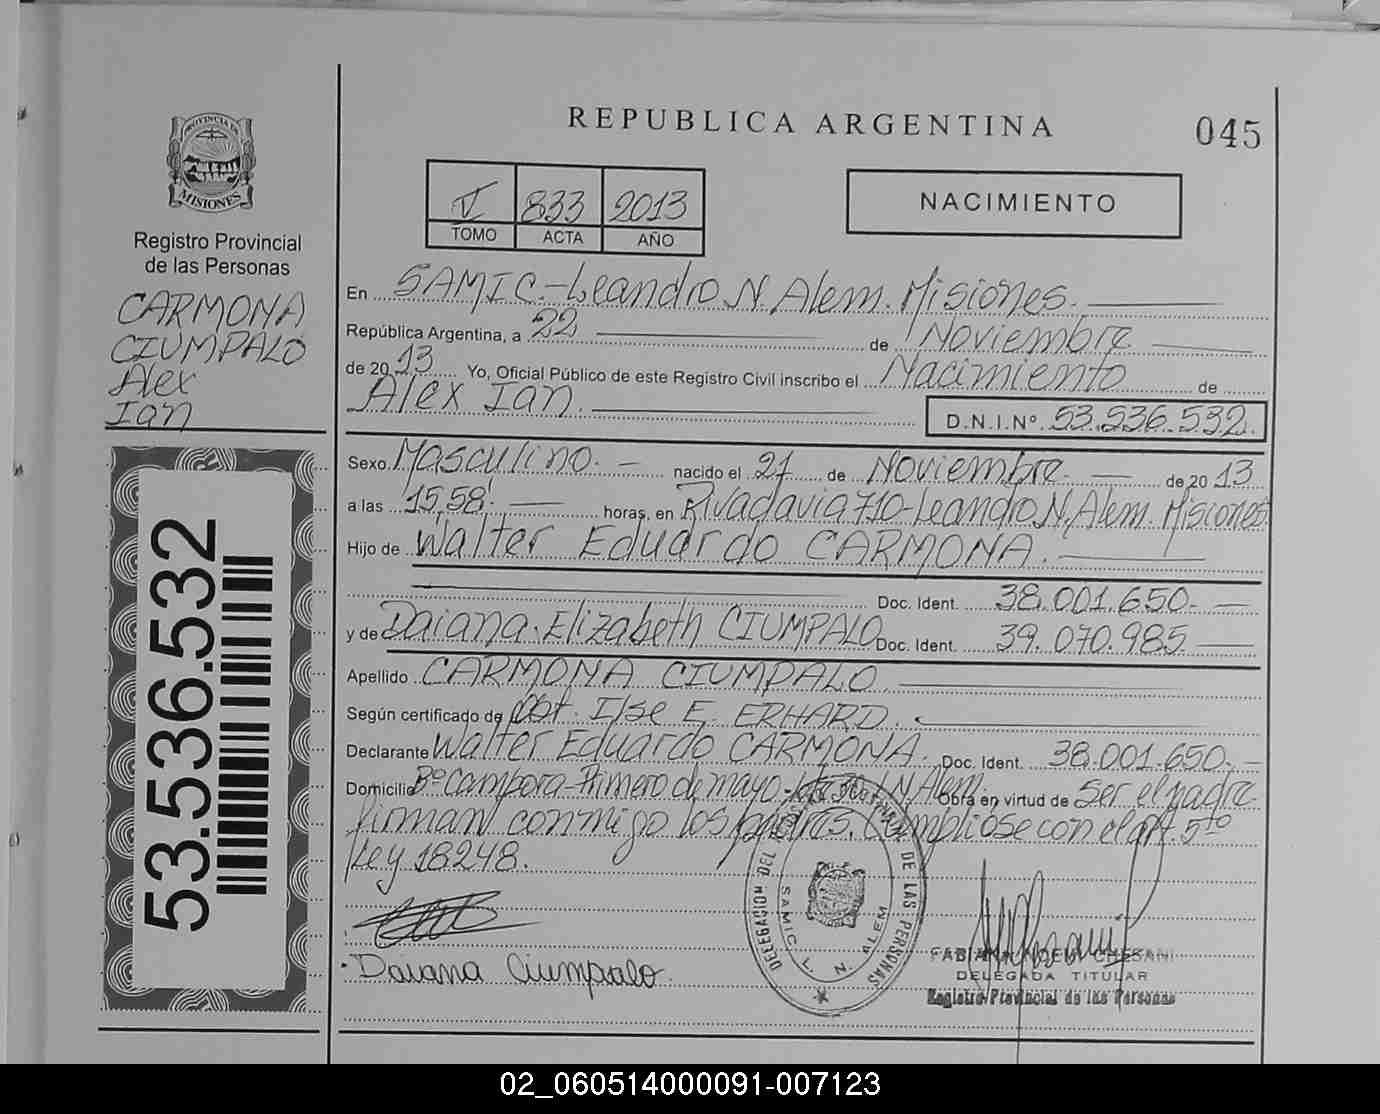 REPUBLICA ARGENTINA
045
PROVINCIA DE
MISIONES
Registro Provincial
de las Personas
CARMONA
CIUMPALO
Alex
Ian
53.536.532
V 833 2013
TOMO ACTA AÑO
NACIMIENTO
En SAMIC.-Leandro N. Alem. Misiones.
República Argentina, a 22 de Noviembre
de 2013 Yo, Oficial Público de este Registro Civil inscribo el Nacimiento de
Alex Ian. D.N.I.Nº 53.536.532.
Sexo Masculino. nacido el 21 de Noviembre. de 2013
a las 15,58'. horas, en Rivadavia 710-Leandro N. Alem. Misiones
Hijo de Walter Eduardo CARMONA.
Doc. Ident. 38.001.650.
y de Daiana Elizabeth CIUMPALO Doc. Ident. 39.070.985.
Apellido CARMONA CIUMPALO
Según certificado de Obt. Ilse E. ERHARD.
Declarante Walter Eduardo CARMONA. Doc. Ident. 38.001.650.
Domicilio Bº Campora-Primero de mayo- L.N.Alem. Obra en virtud de Ser el padre
firman conmigo los padres. Cumpliose con el art. 5to
Ley 18248.
Daiana Ciumpalo
DELEGACION DEL REGISTRO PROVINCIAL DE LAS PERSONAS
SAMIC. L. N. ALEM
FABIANA NOEMI CHESANI
DELEGADA TITULAR
Registro Provincial de las Personas
02_060514000091-007123